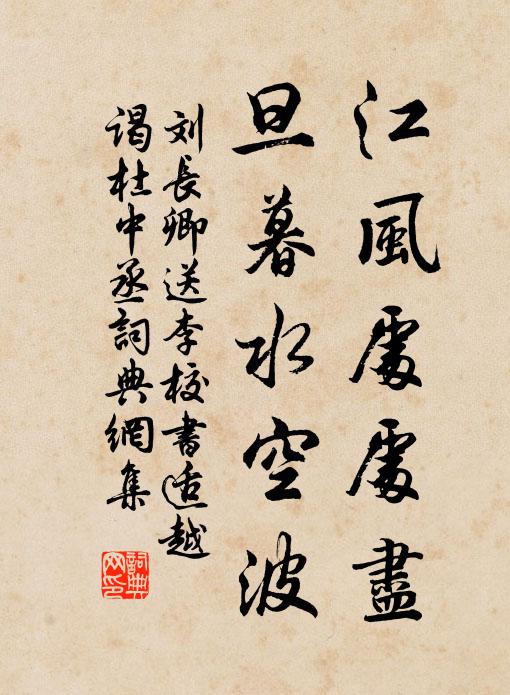 江風處處盡
旦暮水空波
刘長卿送李校書适越
谒杜中丞詞典網集
詞典
网印